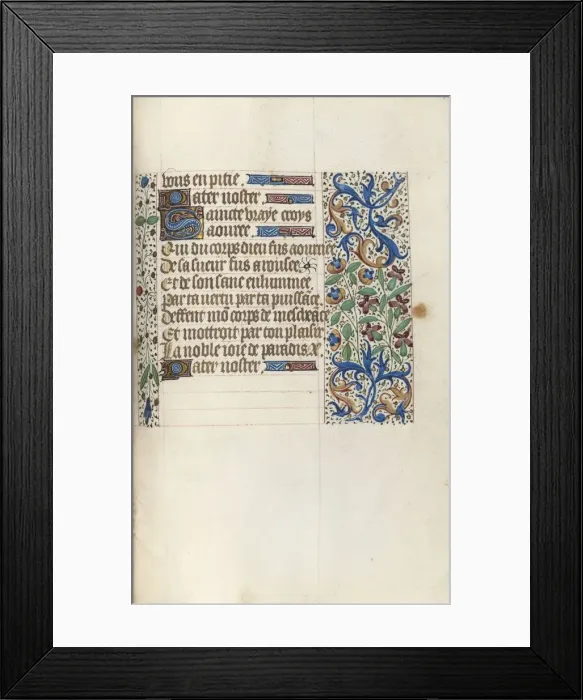 vous en pitie
Pater noster
Saincte vraye croys
aouree
Qui du corps dieu fus aournee
De sa sueur fus arousee
Et de son sanc enluminee
Par ta vertu par ta puissāce
Deffent mō corps de meschāce
Et mottroit par ton plaisir
La noble ioie de paradis
Pater noster